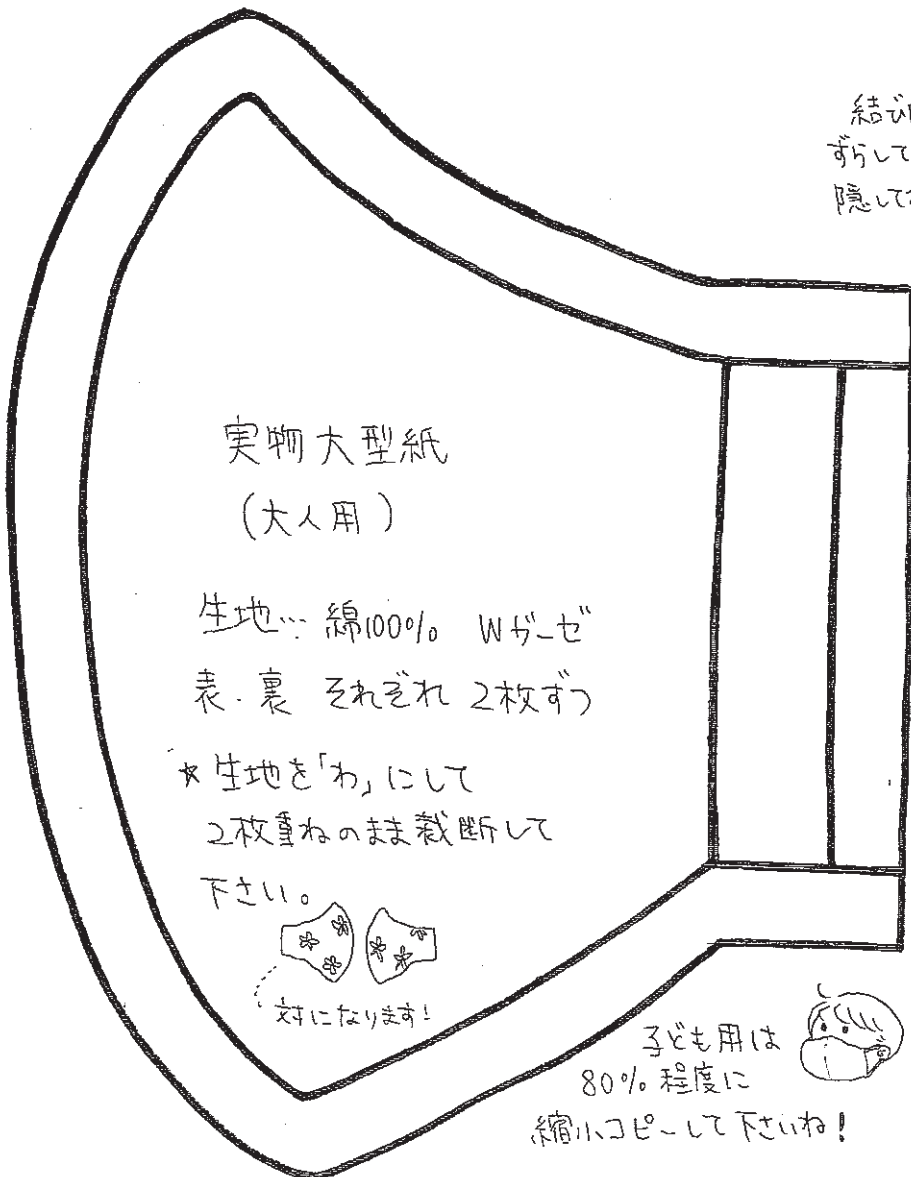 結び
ずらして
隠して
実物大型紙
(大人用)
生地… 綿100% Wガーゼ
表・裏 それぞれ 2枚ずつ
☆生地を「わ」にして
2枚重ねのまま裁断して
下さい。
対になります!
子ども用は
80%程度に
縮小コピーして下さいね!